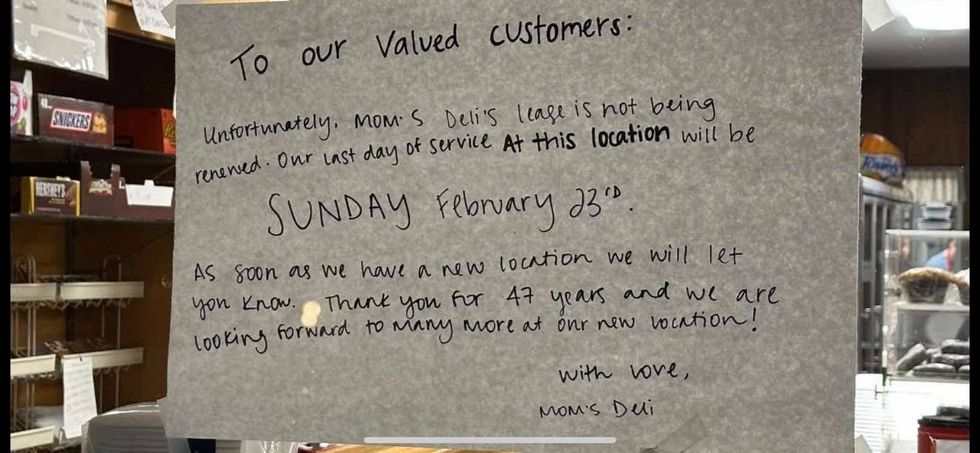 To our Valued customers:
Unfortunately, MOM'S Deli's lease is not being
renewed. Our last day of service At this location will be
SUNDAY February 23rd.
As soon as we have a new location we will let
you know. Thank you for 47 years and we are
looking forward to many more at our new location!
With love,
MOM'S Deli
SNICKERS
HERSHEY'S